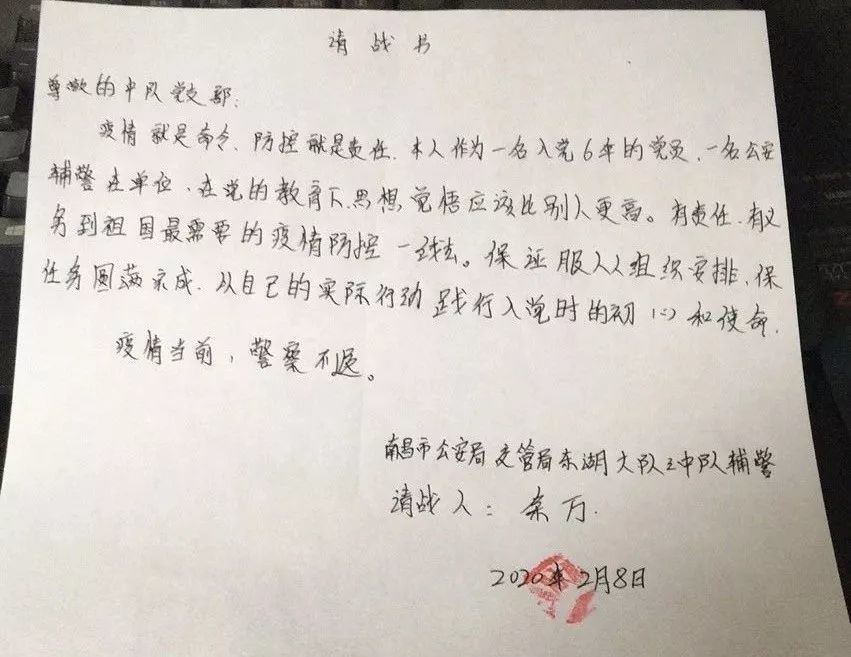 请战书
尊敬的中队党支部:
疫情就是命令、防控就是责任、本人作为一名入党6年的党员、一名公安
辅警在单位、在党的教育下、思想觉悟应该比别人更高。有责任、有义
务到祖国最需要的疫情防控一线去。保证服从组织安排、保
任务圆满完成、以自己的实际行动践行入党时的初心和使命、
疫情当前,警察不退。
南昌市公安局交管局东湖大队三中队辅警
请战人:余万
2020年2月8日